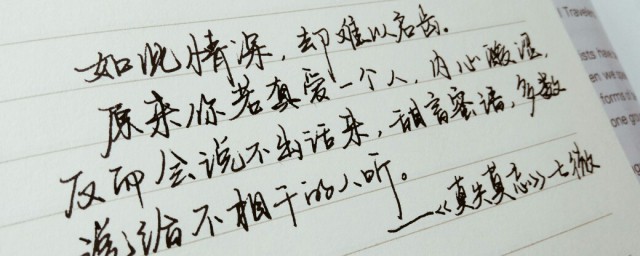 如此情深，却难以启齿。
原来你若真爱一个人，内心酸涩，
反而会说不出话来，甜言蜜语，多数
说给不相干的人听。
——《莫失莫忘》七微
Travele
ists hav
en we
forms
one